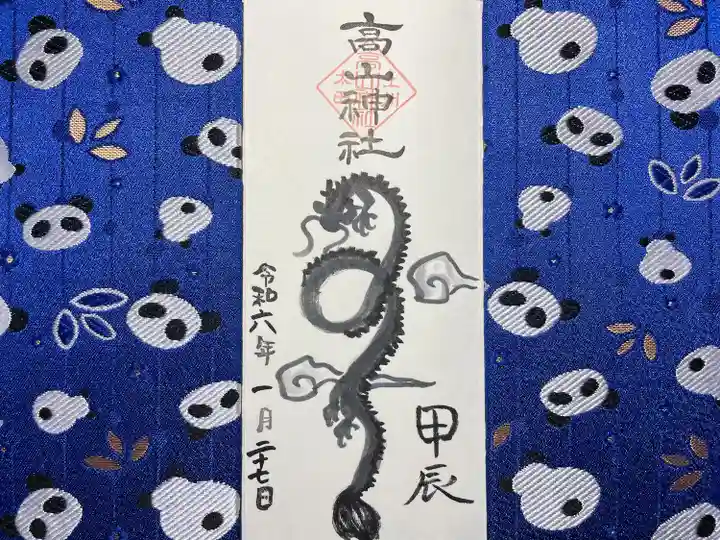 高山神社
甲辰
令和六年 一月二十七日